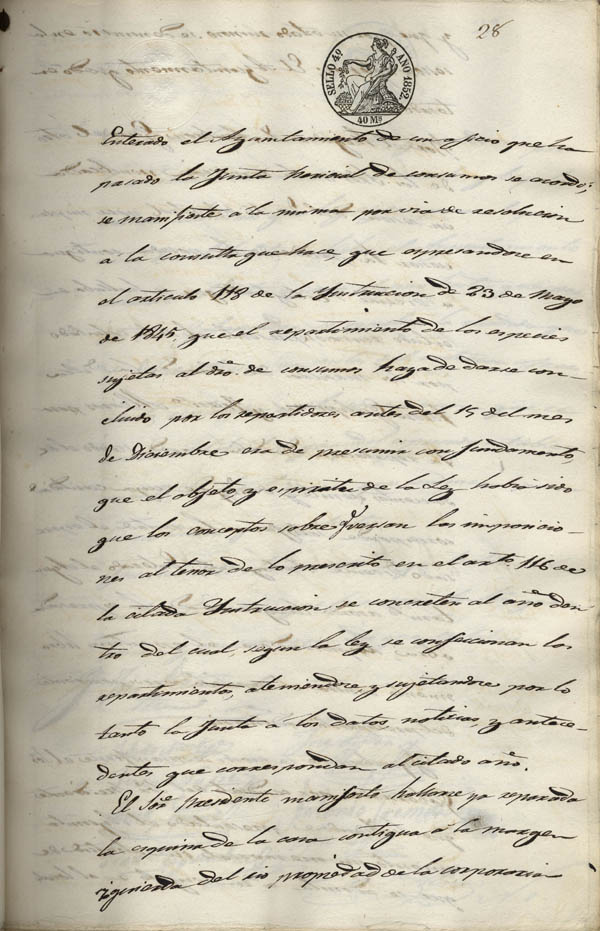 28
SELLO 4º AÑO 1852.
40 Ms
Enterado el Ayuntamiento de un oficio que ha
pasado la Junta Pericial de consumos se acordó;
se manifieste á la misma por via de resolucion
á la consulta que hace, que espresandose en
el articulo 118 de la Ynstruccion de 23 de Mayo
de 1845, que el repartimiento de las especies
sujetas al dro. de consumos haya de darse con-
cluido por los repartidores antes del 15 del mes
de Diciembre era de presumir con fundamento,
que el objeto, y espiritu de la Ley habia sido
que los conceptos sobre q versan las imposicio-
nes al tenor de lo prescrito en el arto. 116 de
la citada Ynstruccion se concreten al año den-
tro del cual, segun la ley se confeccionan los
repartimientos, ateniendose, y sujetandose por lo
tanto la Junta á los datos, noticias, y antece-
dentes que correspondan al citado año.
El Sor. Presidente manifestó hallarse ya reparada
la esquina de la casa contigua á la margen
izquierda del rio propiedad de la corporacion